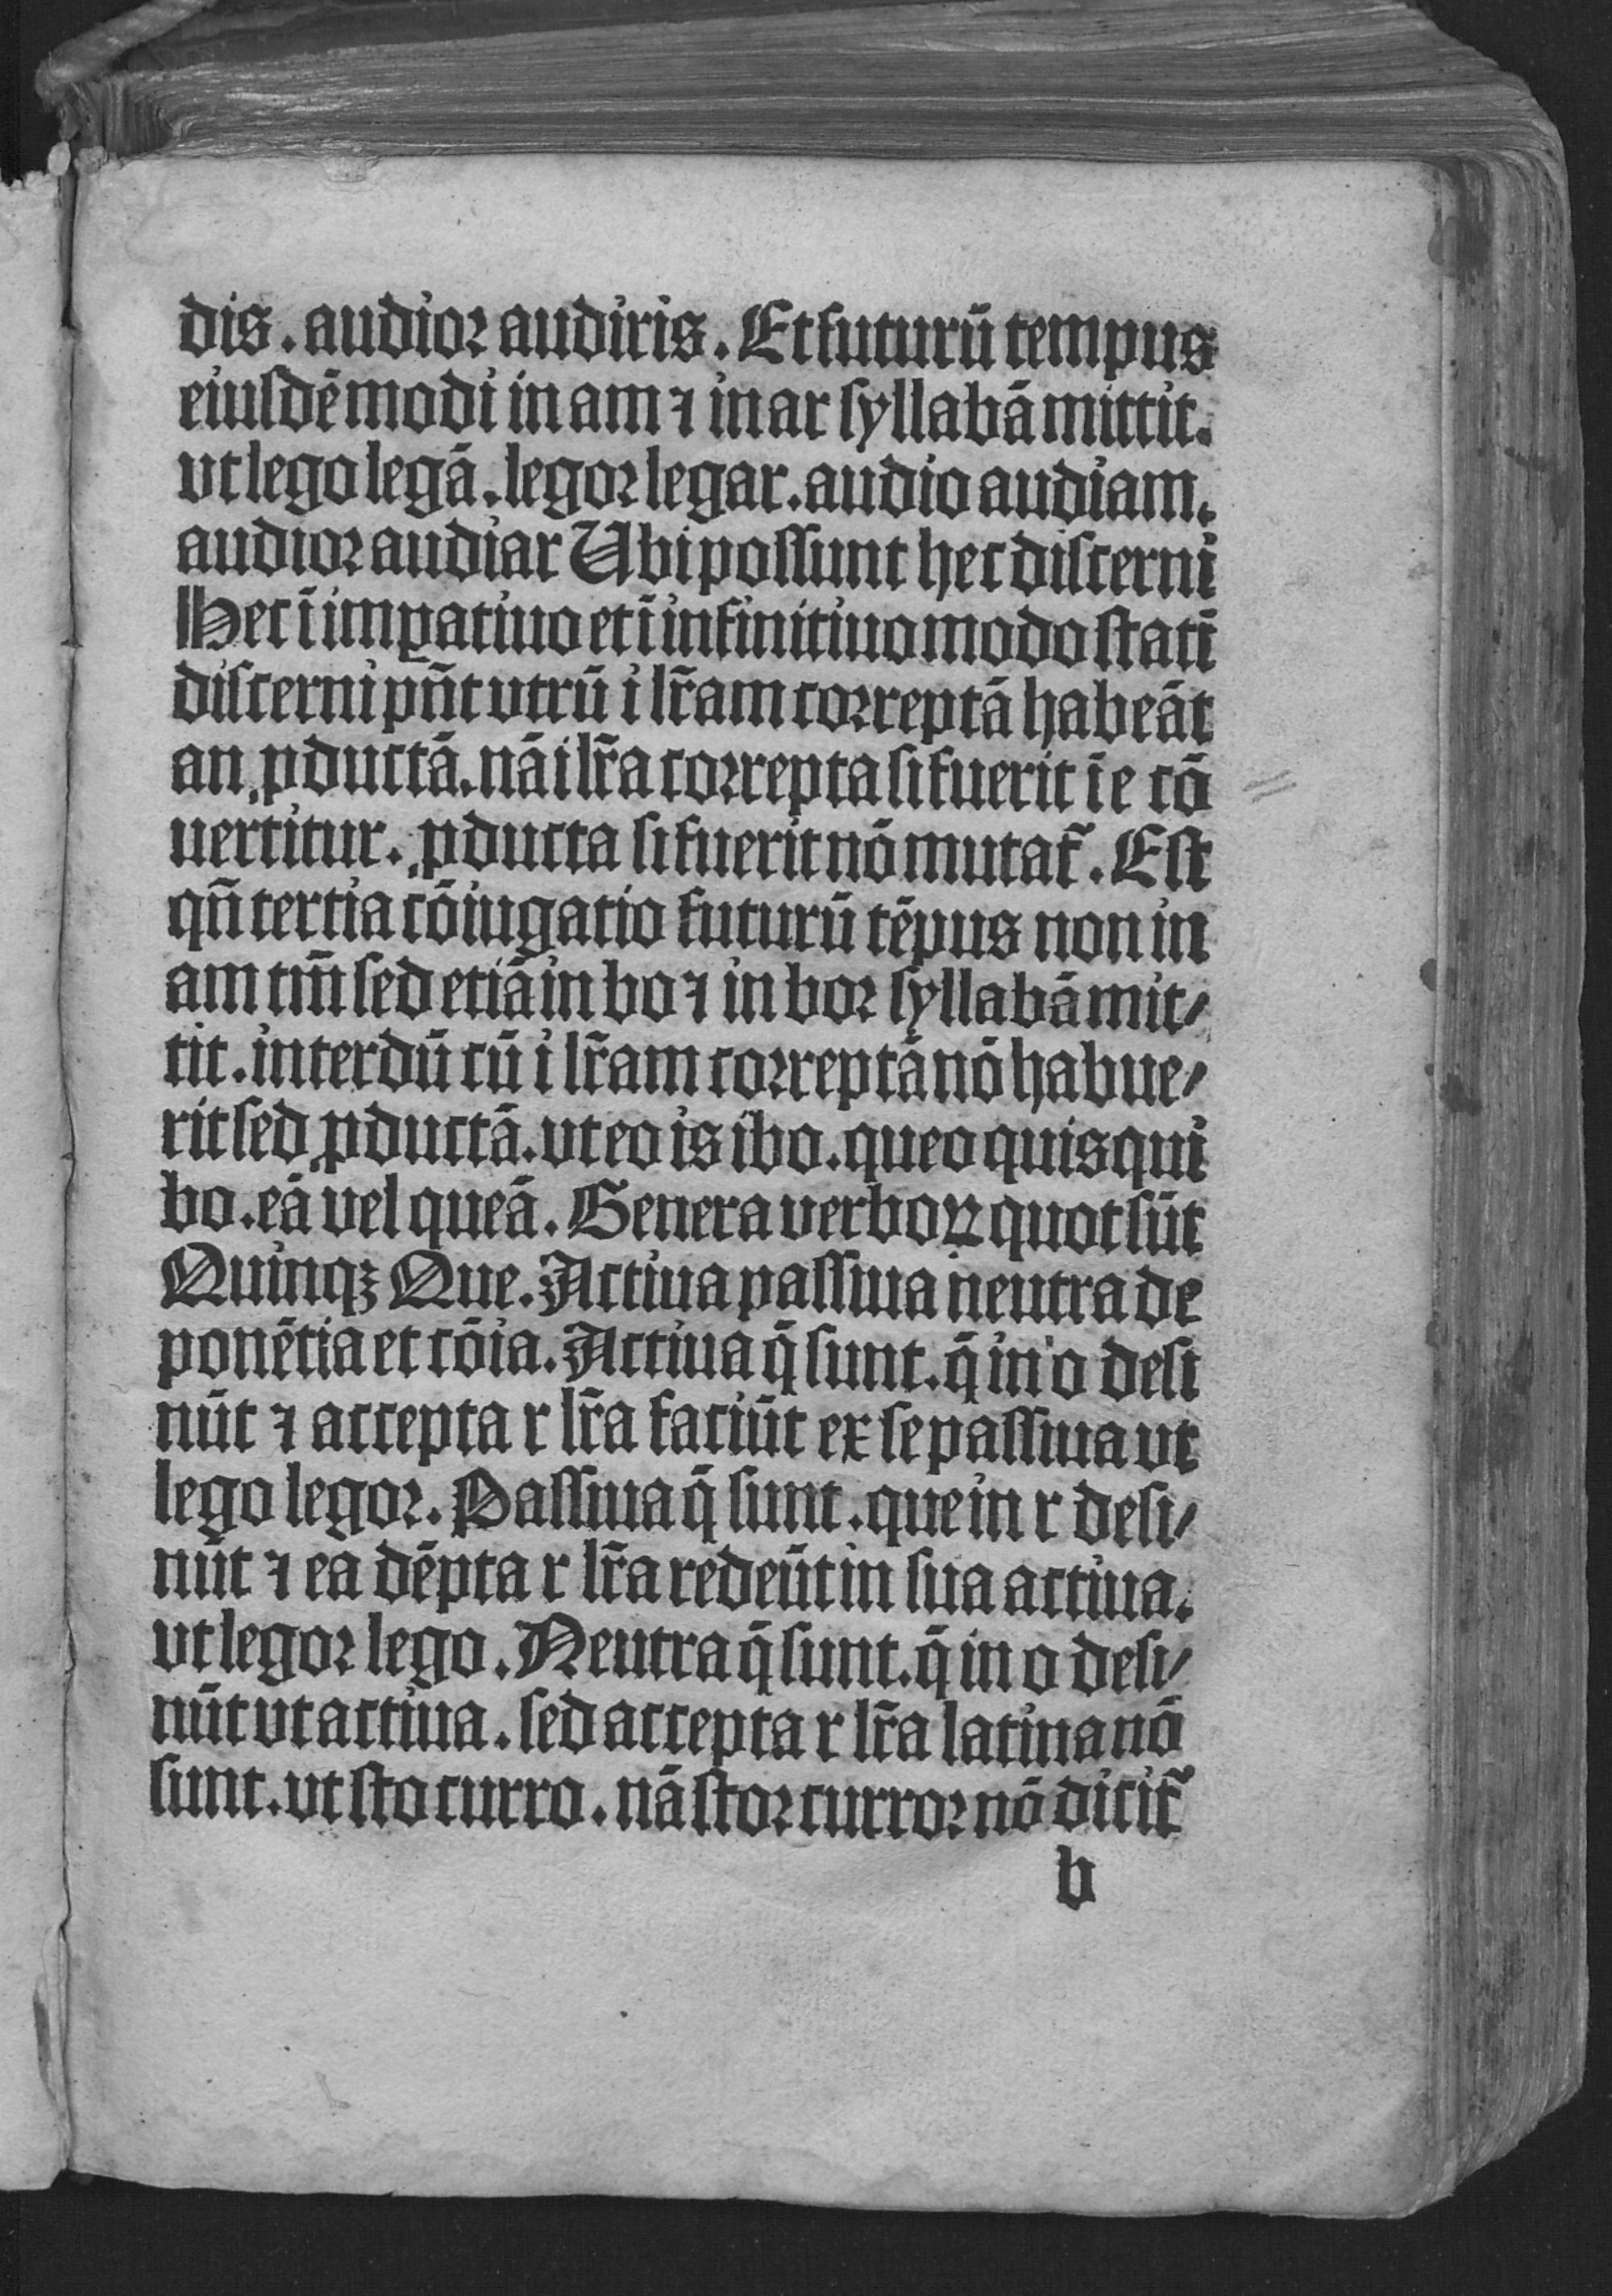 dis . audior audiris . Et futurū tempus
eiusdē modi in am ⁊ in ar syllabā mittit.
vt lego legā . legor legar . audio audiam.
audior audiar Ubi possunt hec discerni
Hec ī imꝑatiuo et ī infinitiuo modo statī
discerni pn̄t vtrū i lr̄am correptā habeāt
an ꝓductā. nā i lr̄a correpta si fuerit ī e cō
uertitur . ꝓducta si fuerit nō mutat᷑ . Est
qn̄ tertia cōiugatio futurū tēpus non in
am tm̄ sed etiā in bo ⁊ in bor syllabā mit⸗
tit . interdū cū i lr̄am correptā nō habue⸗
rit sed ꝓductā . vt eo is ibo . queo quis qui
bo . eā vel queā . Genera verboꝝ quot sūt
Quinqꝫ Que . Actiua passiua neutra de
ponētia et cōia . Actiua q̄ sunt . q̄ in o desi
nūt ⁊ accepta r lr̄a faciūt ex se passiua vt
lego legor . Passiua q̄ sunt . que in r desi⸗
nūt ⁊ ea dēpta r lr̄a redeūt in sua actiua.
vt legor lego . Neutra q̄ sunt . q̄ in o desi⸗
nūt vt actiua . sed accepta r lr̄a latina nō
sunt . vt sto curro . nā stor curror nō dicit᷑
b